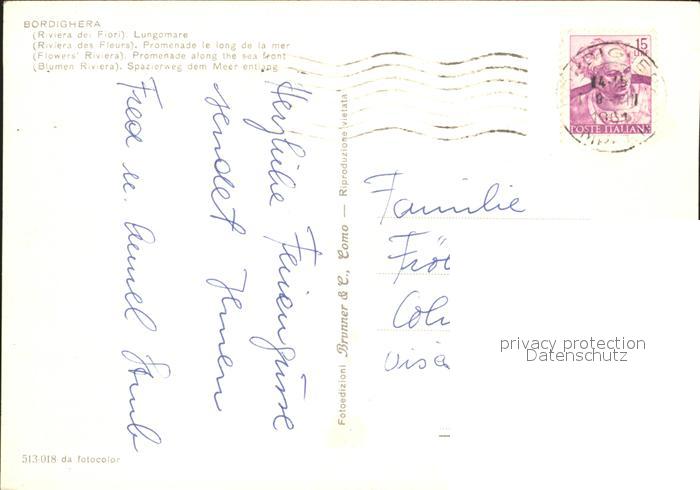 BORDIGHERA
(Riviera dei Fiori). Lungomare
(Riviera des Fleurs). Promenade le long de la mer
(Flowers' Riviera). Promenade along the sea front
(Blumen Riviera). Spazierweg dem Meer entlang
Herzliche Feriengrüsse
sendet Ihnen
Fred u.
Fotoedizioni Brunner & C., Como — Riproduzione vietata
15
LIRE
POSTE ITALIANE
Familie
privacy protection
Datenschutz
513-018 da fotocolor